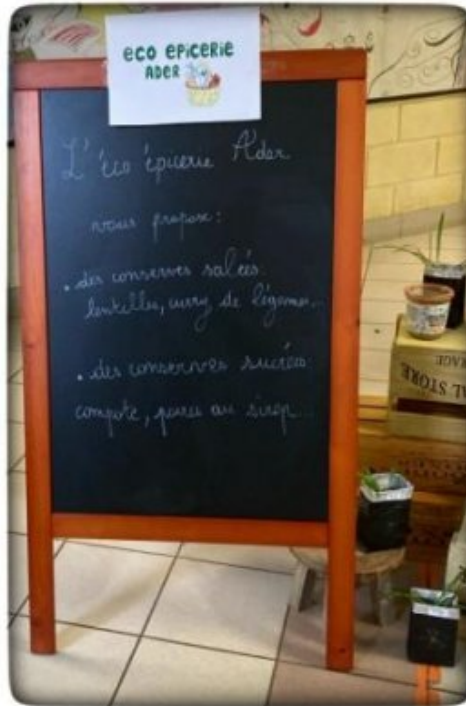 eco epicerie
ader
L'éco épicerie Ader
vous propose :
. des conserves salées
lentilles, curry de légumes...
. des conserves sucrées
compote, poires au sirop...
AL STORE
RAGE